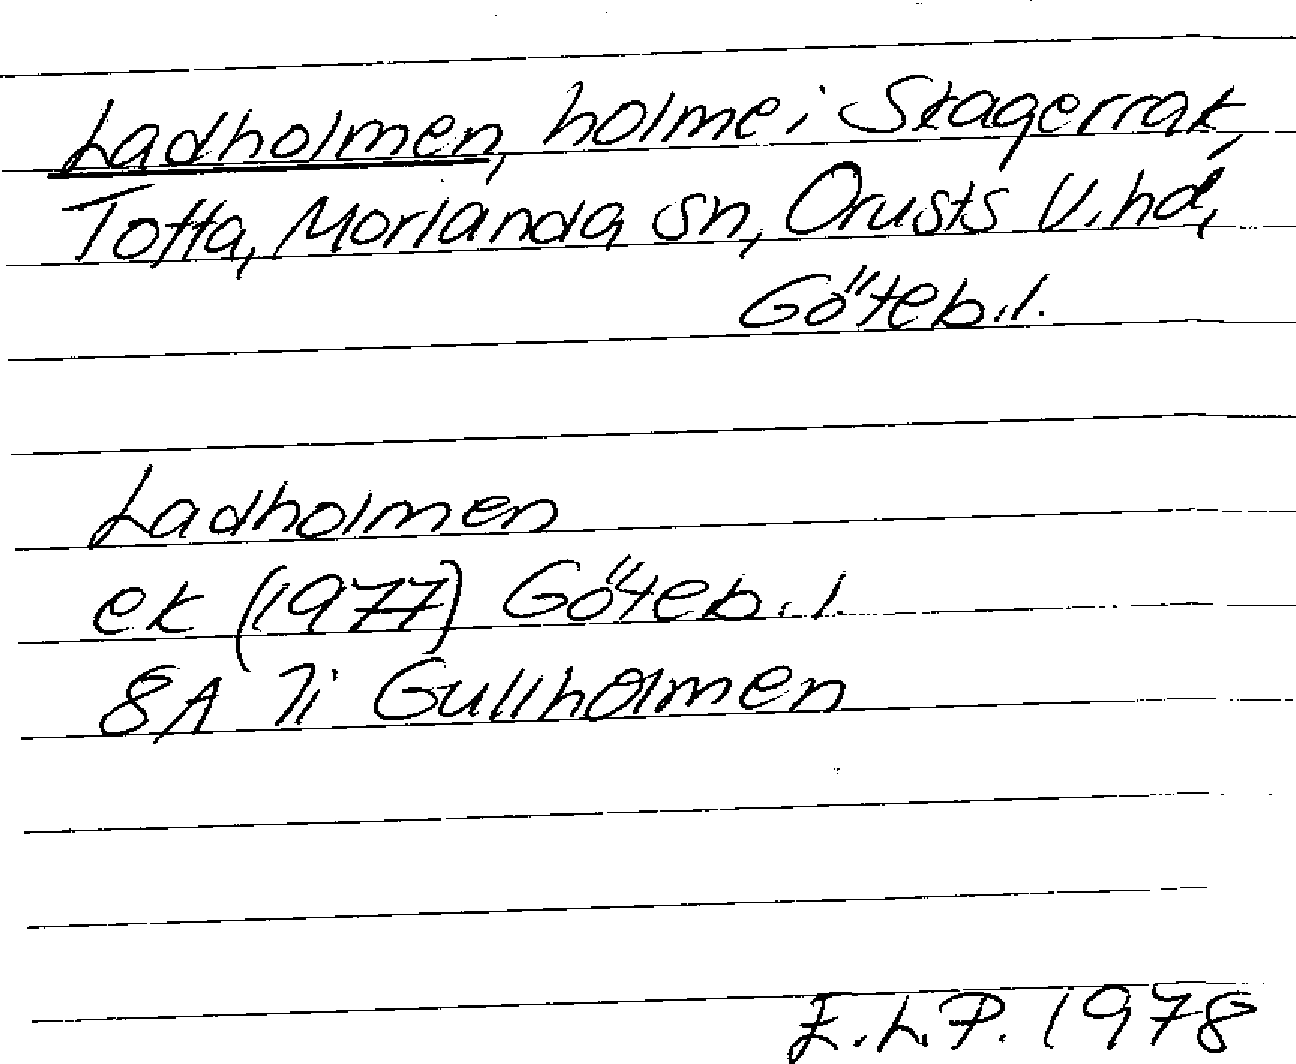 Ladholmen, holme i Skagerrak,
Tofta, Morlanda sn, Orusts V. hd,
Göteb. l.
Ladholmen
ek (1977) Göteb. l.
8A 7i Gullholmen
E.L.P. 1978